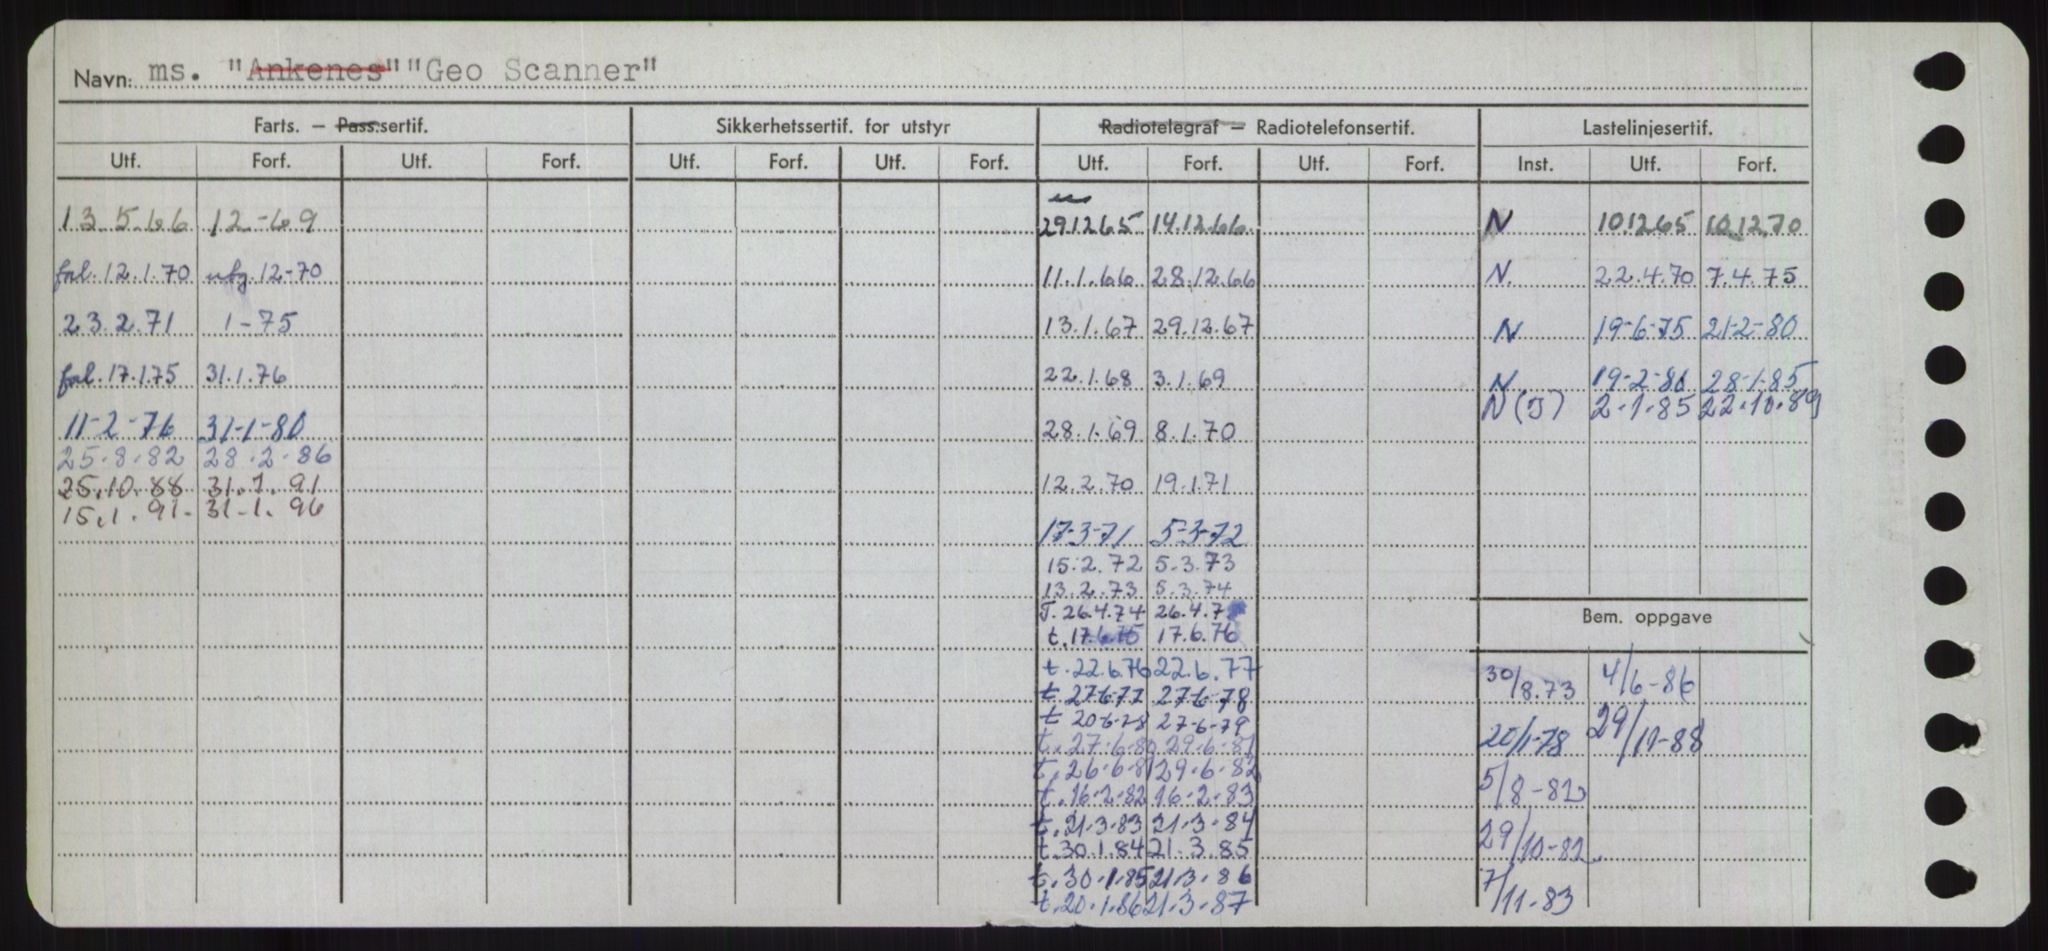 Navn: ms. "Ankenes" "Geo Scanner"
Farts. – Pass.sertif. Sikkerhetssertif. for utstyr Radiotelegraf – Radiotelefonsertif. Lastelinjesertif.
Utf. Forf. Utf. Forf. Utf. Forf. Utf. Forf. Utf. Forf. Utf. Forf. Inst. Utf. Forf.
13.5.66 12-69 29.12.65 14.12.66 N 10.12.65 10.12.70
fnl. 12.1.70 12-70 11.1.66 28.12.66 N. 22.4.70 7.4.75
23.2.71 1-75 13.1.67 29.12.67 N 19-6-75 21-2-80
fnl. 17.1.75 31.1.76 22.1.68 3.1.69 N 19-2-81 28-1-85
N (J) 2.1.85 22.10.89
11-2-76 31-1-80 28.1.69 8.1.70
25.8.82 28.2.86
25.10.88 31.1.91 12.2.70 19.1.71
15.1.91- 31-1.96
17-3-71 5-3-72
15.2.72 5.3.73
13.2.73 5.3.74
T. 26.4.74 26.4.7
Bem. oppgave
t. 17.6.75 17.6.76
t. 22.6.76 22.6.77 30/8.73 4/6-86
t. 27-6-77 27-6-78
t 20-6-78 27-6-79
t. 27.6.80 29.6.81 20/1-78 29/11-88
t. 26.6.81 29.6.82
t. 16.2.82 16.2.83 5/8-82
t. 21.3.83 21.3.84
t. 30.1.84 21.3.85 29/10-82
t. 30.1.85 21.3.86 7/11-83
t. 20.1.86 21.3.87